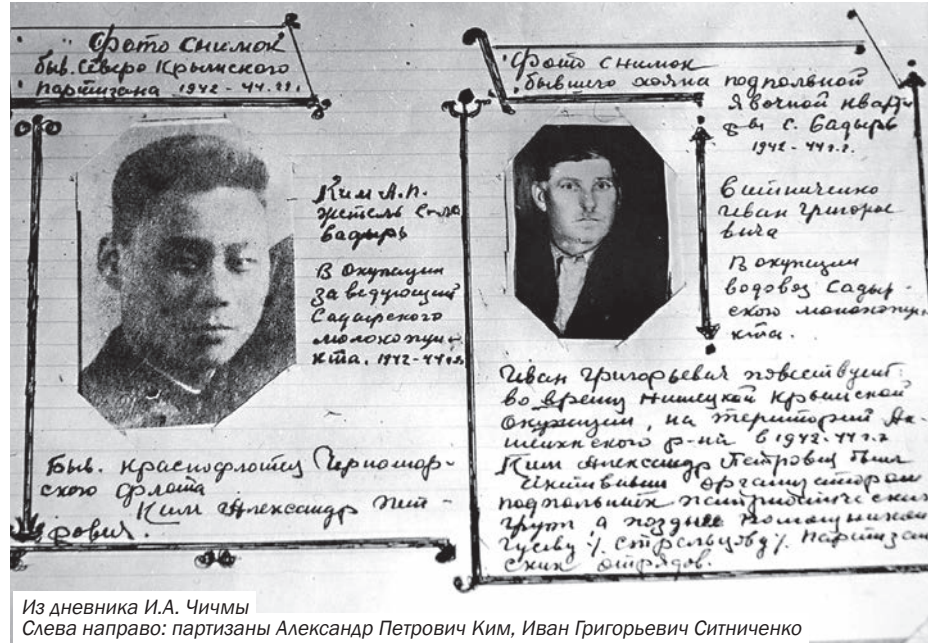 Фото снимок
быв. Северо Крымского
партизана 1942-44.гг.
Ким А.П.
житель села
Садырь
В окупации
заведующий
Садырского
молокопун-
кта. 1942-44г.г.
Быв. краснофлотец Черномор-
ского флота
Ким Александр Пет-
рович.
Фото снимок
бывшего хозяина подпольной
явочной кварти-
с. Садырь
1942-44г.г.
Ситниченко
Иван Григорье
вича
В окупации
водовоз Садыр-
ского молокопун-
кта.
Иван Григорьевич повествует:
во время немецкой крымской
окупации, на територии
р-на в 1942-44г.г.
Ким Александр Петровид был
организатором
подпольных патриотических
груп а позднее помощником
Гусеву /. Стрельцову /. партизан
ских отрядов.
Из дневника И.А. Чичмы
Слева направо: партизаны Александр Петрович Ким, Иван Григорьевич Ситниченко